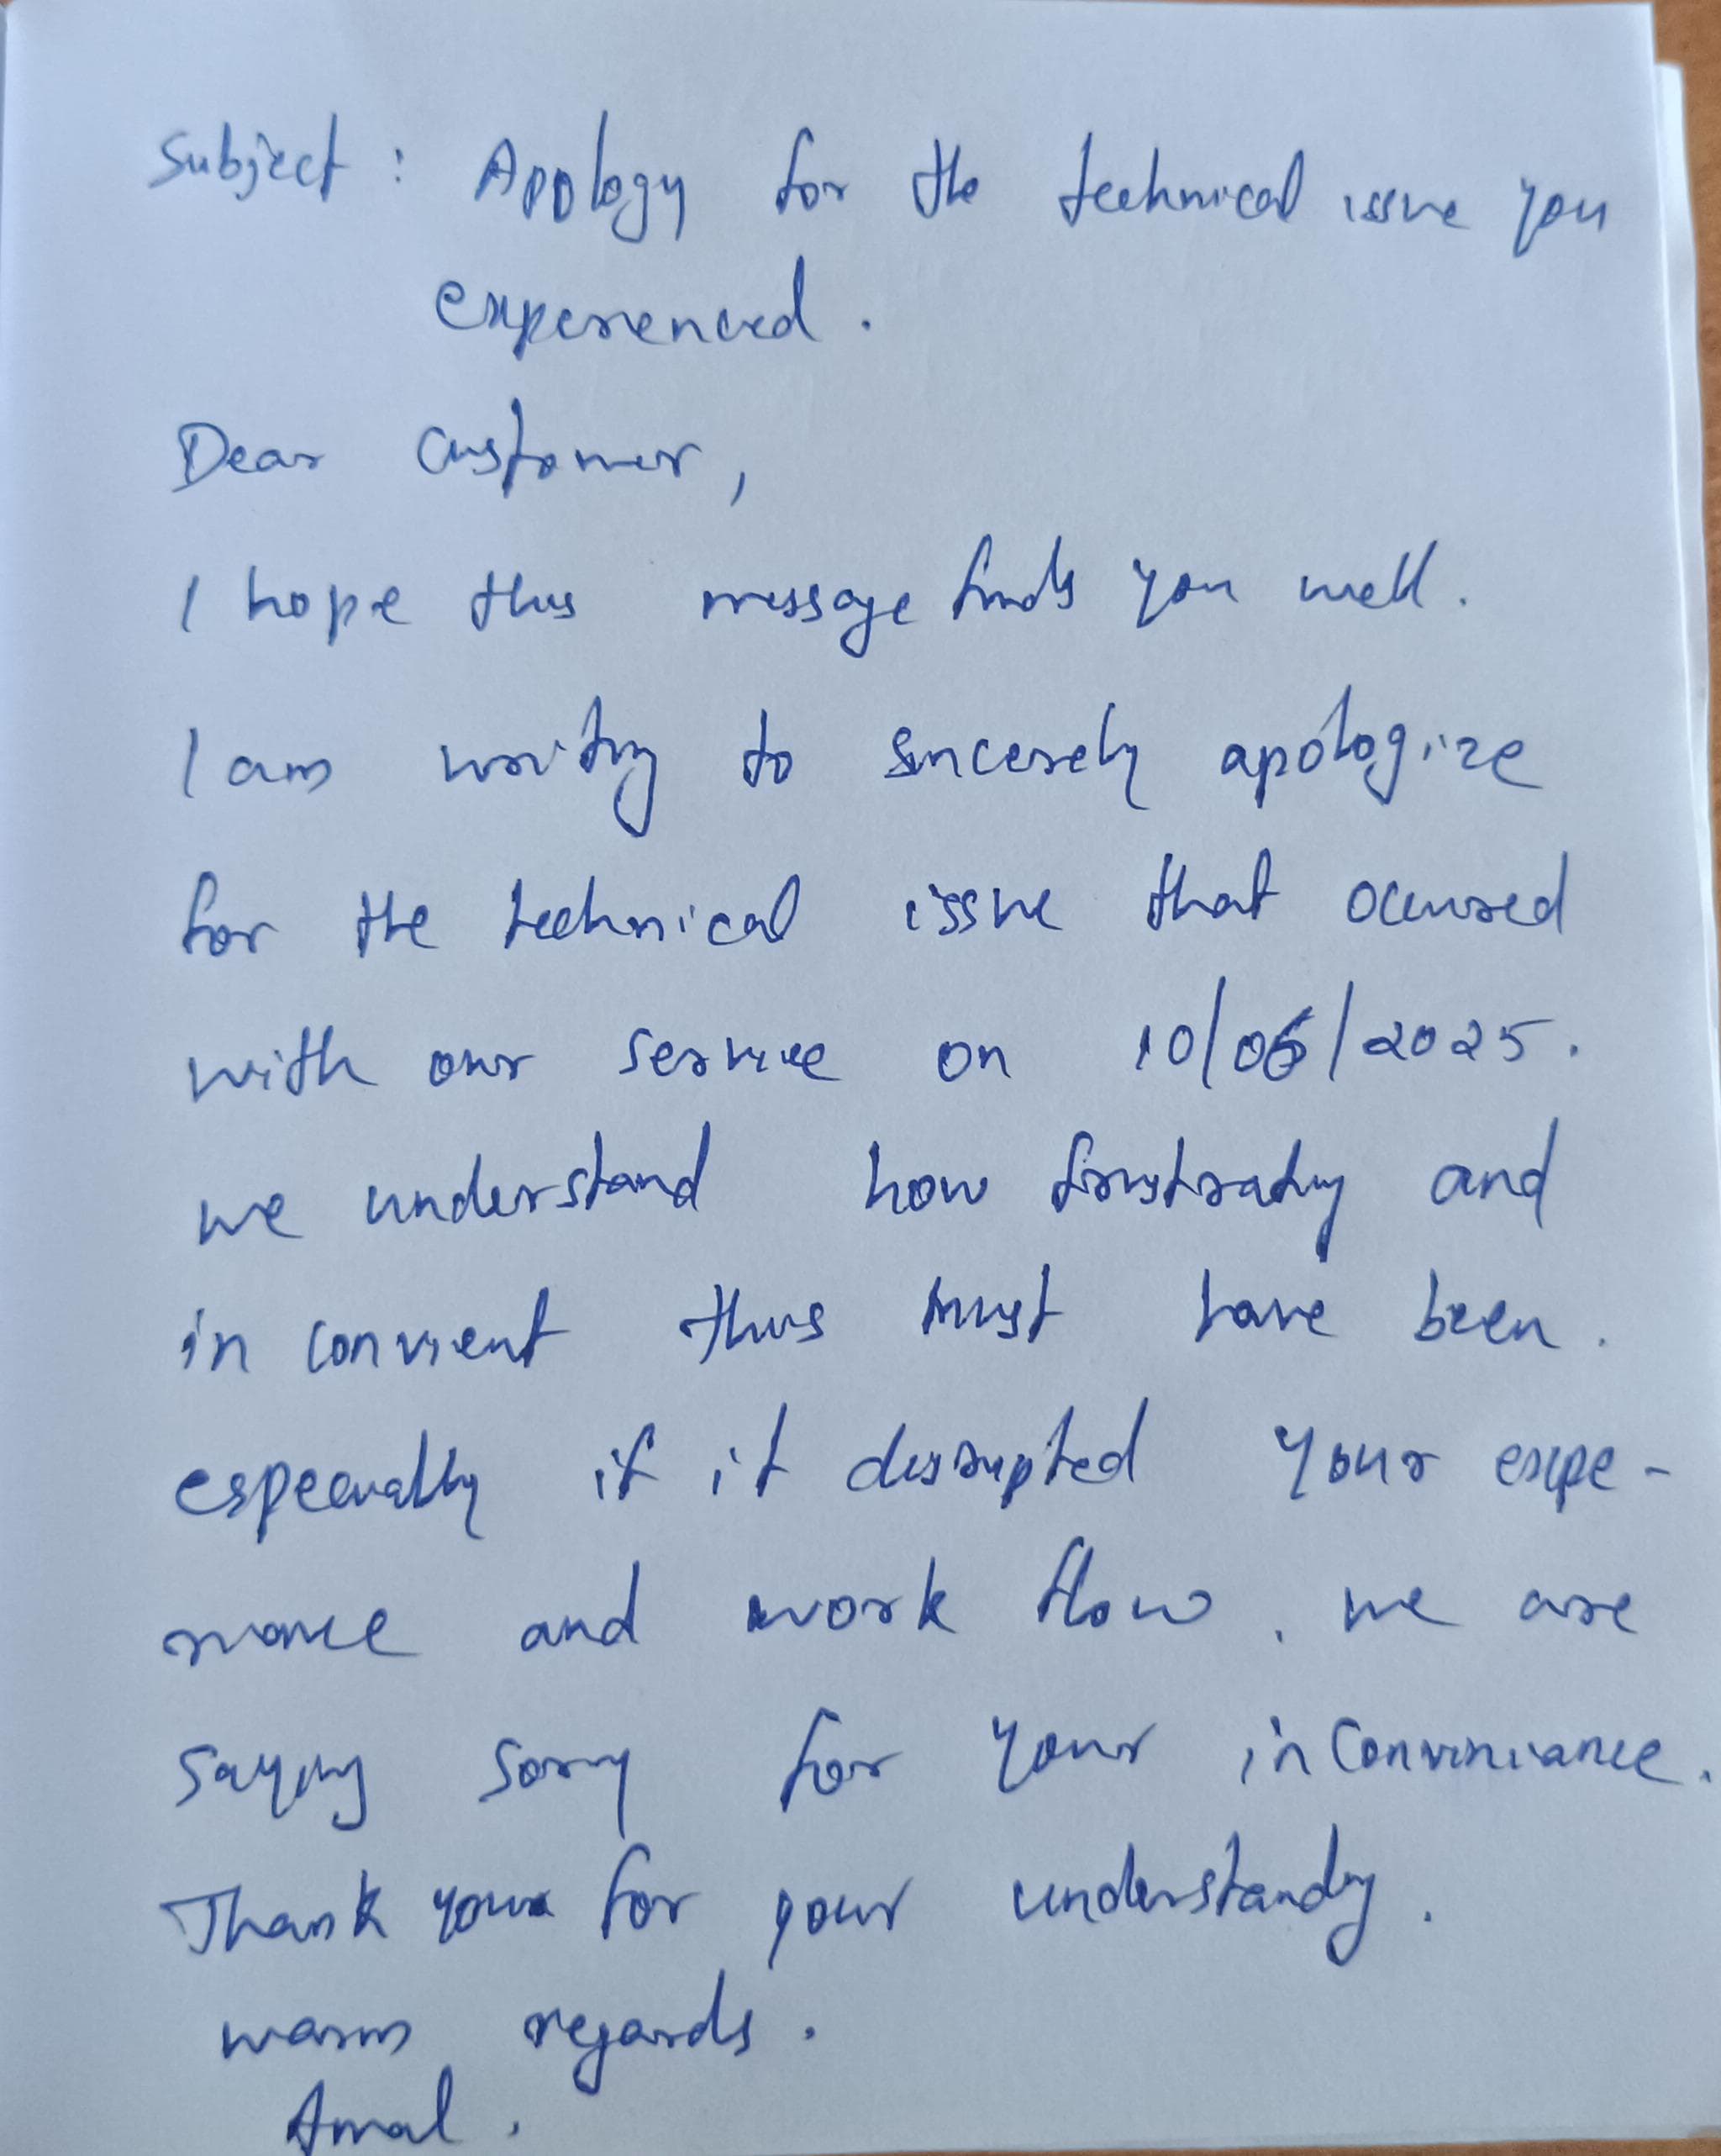 Subject : Apology for the technical issue you
experienced.
Dear Customer,
I hope this message finds you well.
I am writing to sincerely apologize
for the technical issue that occured
with our service on 10/06/2025.
we understand how frustrating and
in convient this must have been.
especially if it disrupted your expe-
rience and work flow. we are
saying sorry for your inconviniance.
Thank you for your understanding.
warm regards.
Amal.